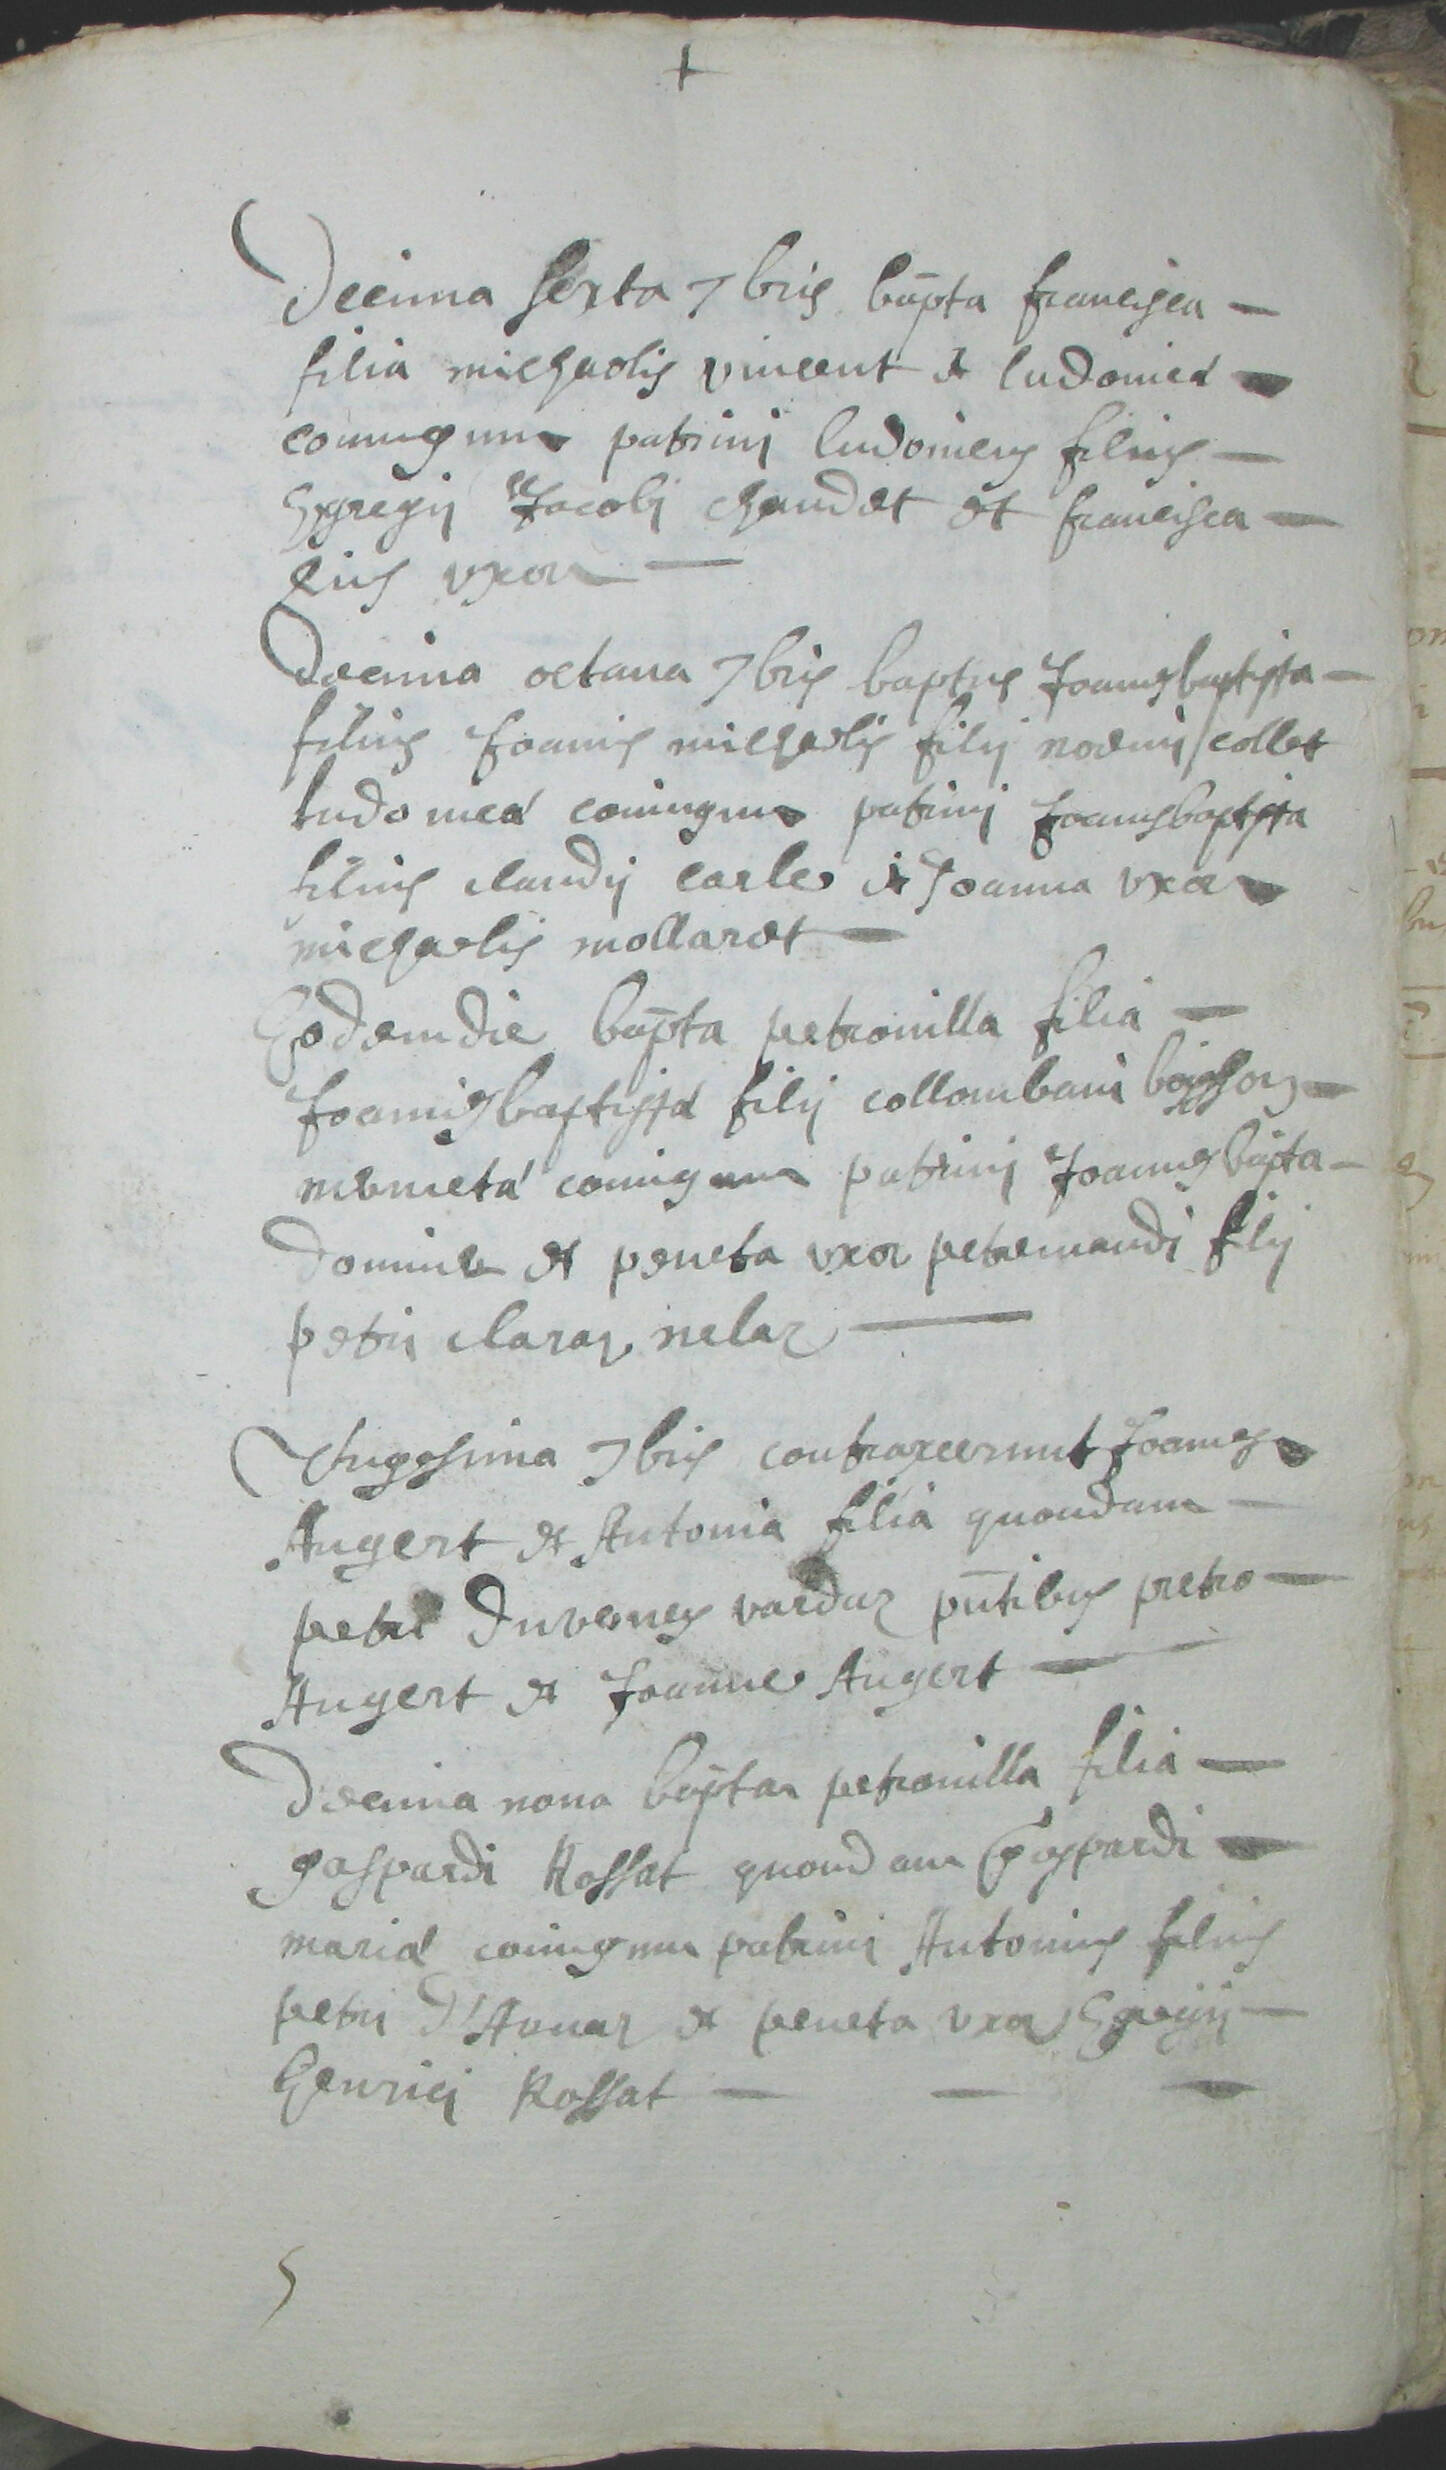 +
Decima sexta 7bris bapta francisca –
filia michaelis vincent et ludovica
coniugum patrini ludovicus filius –
Egregij Jacobi chaudet et francisca –
eius uxor –
Decima octava 7bris baptus Joannesbaptista –
filius Joannis michaelis filij noelnij / collet
ludovica coniugum patrini Joannesbaptista
filius claudij carle et Joanna uxor
michaelis mollaret –
Eodemdie bapta petronilla filia –
Joannisbaptista filij collombani boisson –
coniugum patrini Joannesbapta –
et peneta uxor petremandi filij
petri claraz nelaz –
Vigesima 7bris contraxerunt Joannes
Augert et Antonia filia quondam –
petri Duverney vardaz pntibus petro –
Augert et Joanne Augert –
Decima nona bapta petronilla filia –
gaspardi Rossat quondam gaspardi
maria coniugum patrini Antonius filius
petri D'Avnaz et peneta uxor Egregij –
henrici Rossat – – –